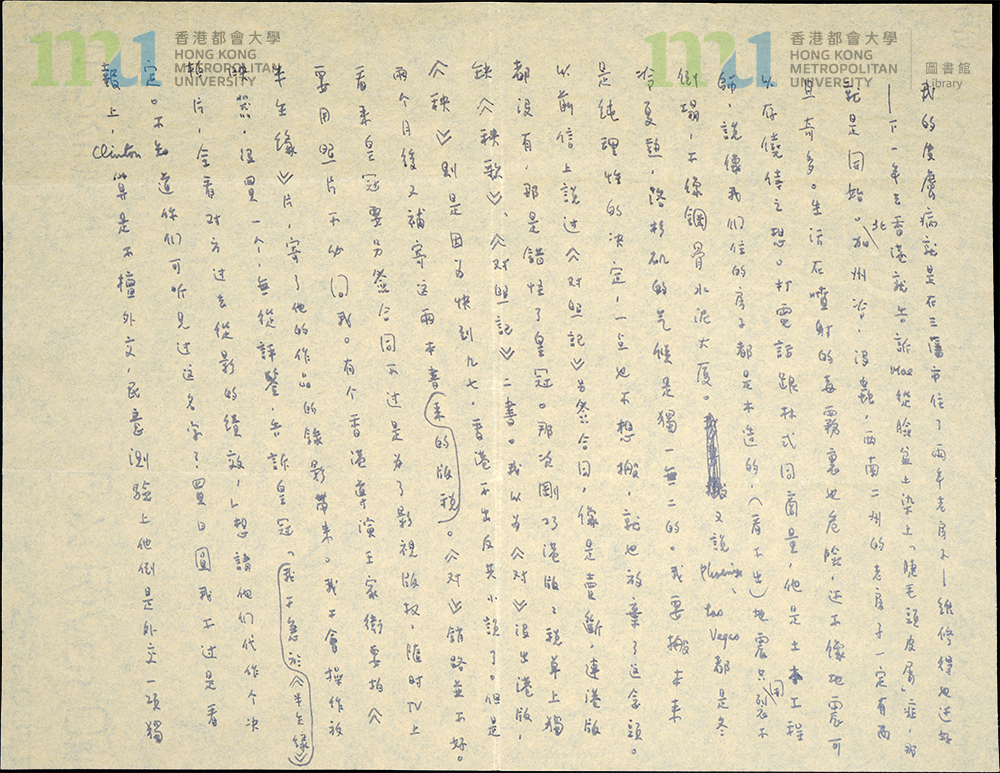 香港都會大學
HONG KONG
METROPOLITAN
UNIVERSITY
香港都會大學
HONG KONG
METROPOLITAN
UNIVERSITY
圖書館
Library
我的皮膚病就是在三藩市住了兩年老房子—維修得也還好
—下一年去香港就告訴Mae從臉盆上染上「睫毛頭皮屑」症,那
就是同始。北加州冷,沒蟲,西南二州的老房子一定有而
且奇多。生活在噴射的毒霧裏也危險,還不像地震可
以存僥倖之想。打電話跟林式同商量,他是土木工程
師,說像我們住的房子都是木造的,(看不出)地震只用裂不
倒塌,不像鋼骨水泥大廈。又說Phoenix、Las Vegas都是冬
冷夏熱,洛杉磯的氣候是獨一無二的。我要搬本來
是純理性的決定,一点也不想搬,就也放棄了這念頭。
以前信上說过《对照記》另簽合同,像是賣斷,連港版
都沒有,那是錯怪了皇冠。那次剛巧港版版稅單上獨
缺《秧歌》、《对照記》二書。我以為《对》沒出港版,
《秧》則是因為快到九七,香港不出反共小說了。但是
兩个月後又補寄這兩本書来的版税。《对》銷路並不好。
看来皇冠要另簽合同不过是为了影視版权,隨时TV上
要用照片不必问我。有个香港導演王家衛要拍《
半生緣》片,寄了他的作品的錄影帶来。我不會操作放
映器,沒買一个,無從評鑒,告訴皇冠「我不急於《半生緣》
拍片,全看对方过去從影的績效,」想請他們代作个決
定。不知道你們可听見过这名字?買日圓我不过是看
報上,Clinton算是不擅外交,民意測驗上他倒是外交一項獨